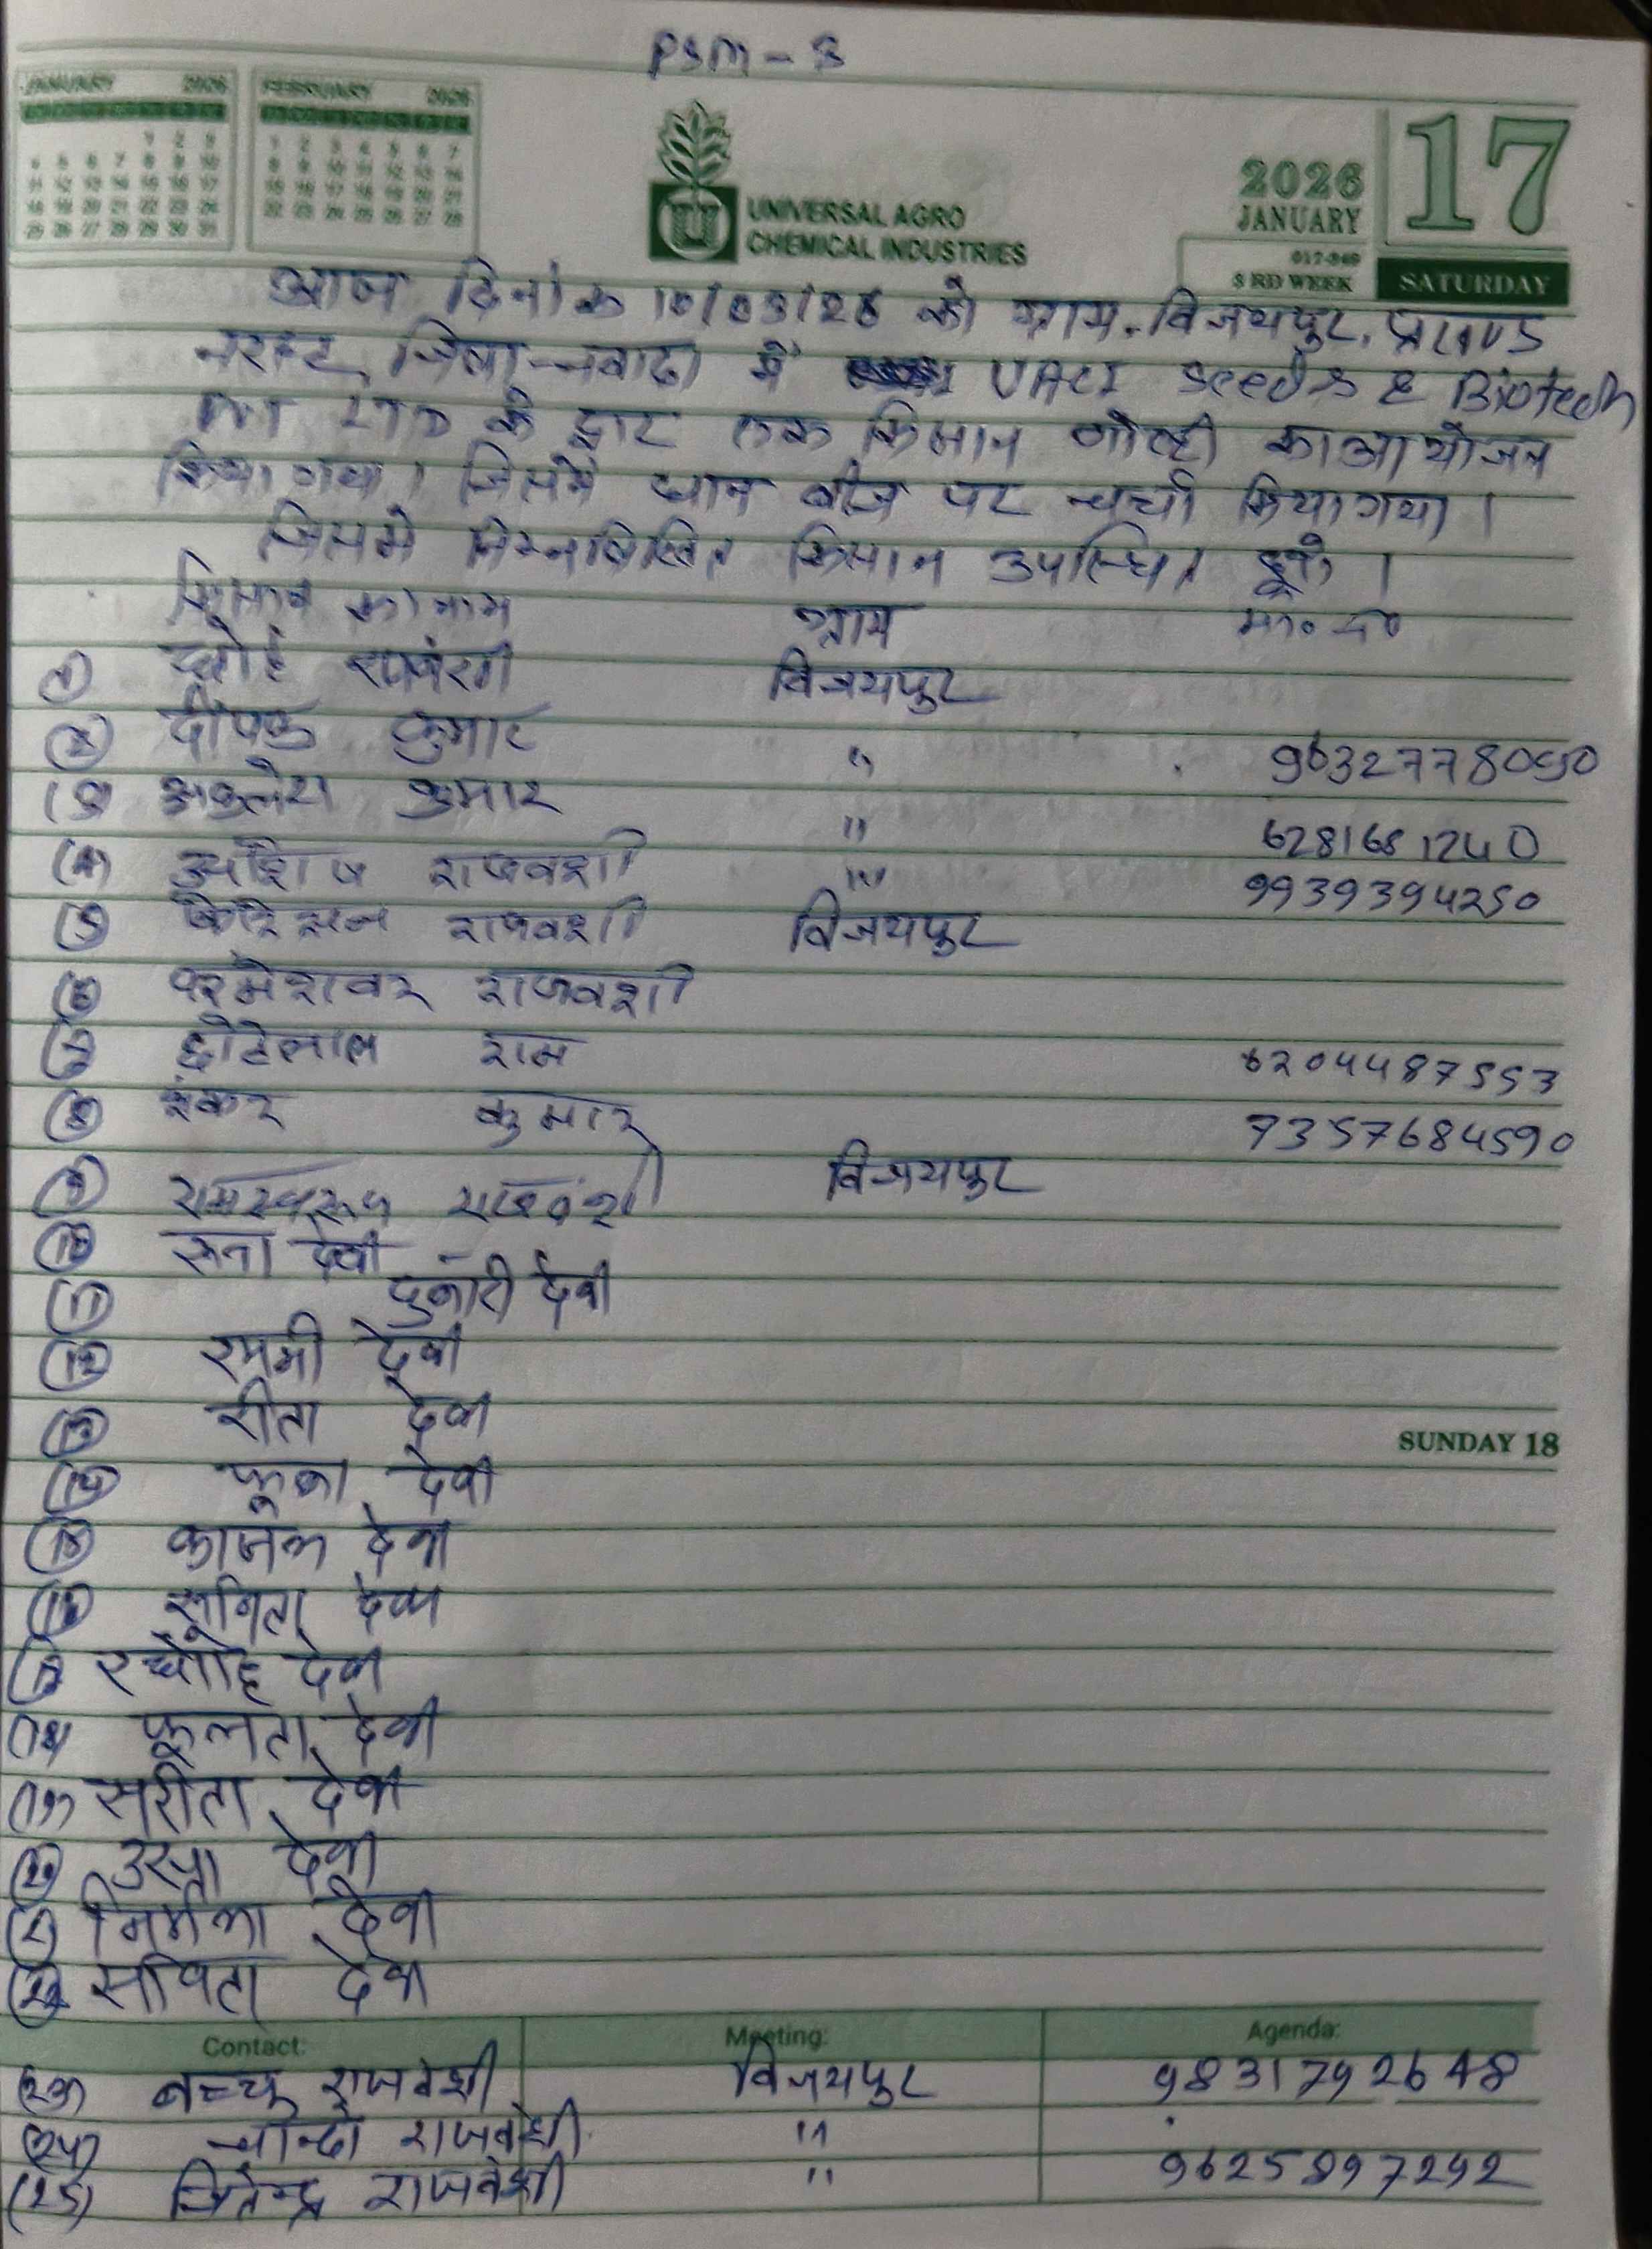 PSM - 3
JANUARY 2026
FEBRUARY 2026
UNIVERSAL AGRO
CHEMICAL INDUSTRIES
2026
JANUARY
17
017-348
3 RD WEEK
SATURDAY
आज दिनांक 10/03/26 को ग्राम. विजयपुर,
नरहट, जिला-नवादा में UACI Seeds & Biotech
PVT LTD के द्वारा एक किसान गोष्ठी का आयोजन
किया गया। जिसमें धान बीज पर चर्चा किया गया।
जिसमे निम्नलिखित किसान उपस्थित हुये।
किसान का नाम ग्राम मो० न०
(1) राजवंशी विजयपुर
(2) दीपक कुमार " 9632778050
(3) कुमार " 6281681240
(4) राजवंशी " 9939394250
(5) राजवंशी विजयपुर
(6) परमेशवर राजवशी
(7) छोटेलाल राम 6204487553
(8) शंकर कुमार 7357684590
(9) रामस्वरूप राजवंशी विजयपुर
(10) देवी
(11) दुलारी देवी
(12) देवी
(13) रीता देवी
(14) देवी
(15) देवी
(16) देवी
(17) देवी
(18) फूलता देवी
(19) सरीता देवी
(20) उसा देवी
(21) निर्मला देवी
(22) सविता देवी
SUNDAY 18
Contact: Meeting: Agenda:
(23) बच्चू राजवंशी विजयपुर 9831792648
(24) राजवंशी "
(25) जितेन्द्र राजवंशी " 9625897292